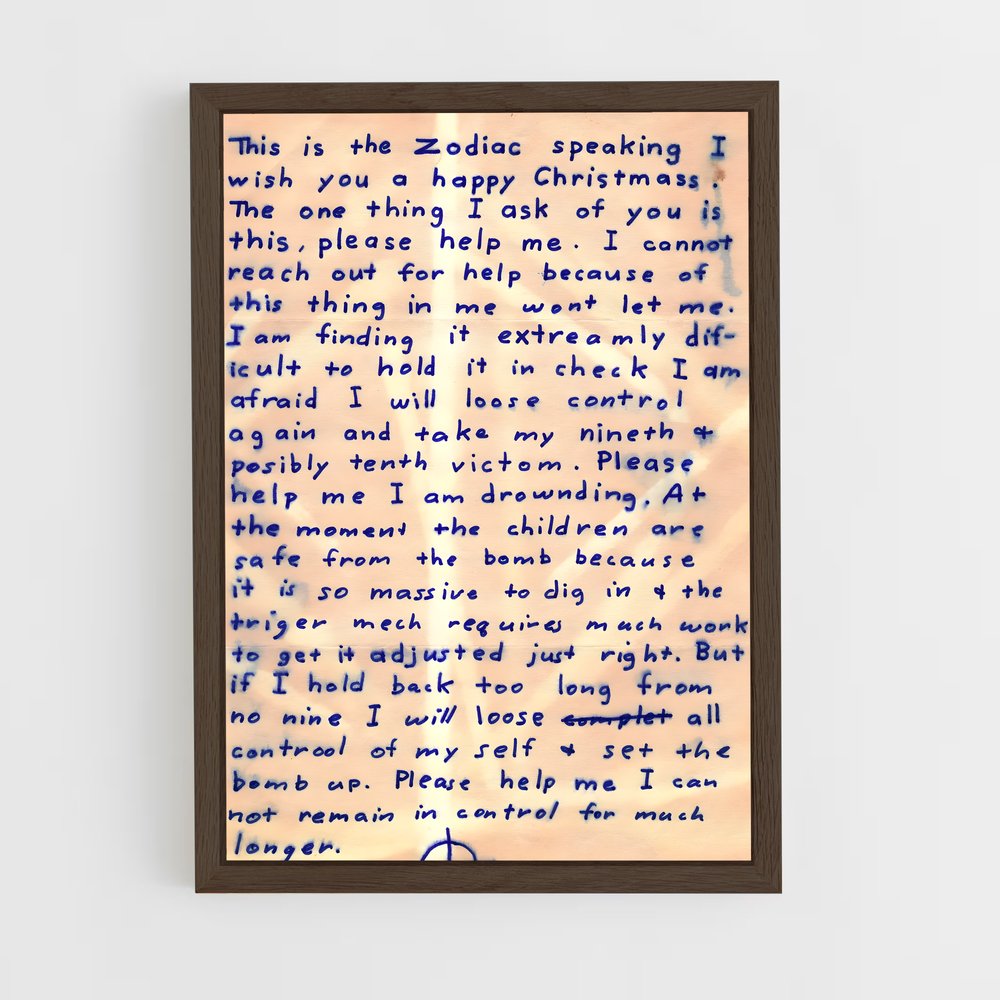 This is the Zodiac speaking I
wish you a happy Christmass.
The one thing I ask of you is
this, please help me. I cannot
reach out for help because of
this thing in me wont let me.
I am finding it extreamly dif-
icult to hold it in check I am
afraid I will loose control
again and take my nineth &
posibly tenth victom. Please
help me I am drownding. At
the moment the children are
safe from the bomb because
it is so massive to dig in & the
triger mech requires much work
to get it adjusted just right. But
if I hold back too long from
no nine I will loose complet all
controol of my self & set the
bomb up. Please help me I can
not remain in control for much
longer.